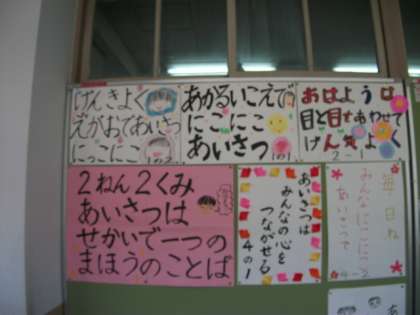 げんきよく
えがおであいさつ
にこにこ
1の2
あかるいこえで
にこにこ
あいさつ
1の1
おはようは
目と目をあわせて
げん気よく
2-1
2ねん2くみ
あいさつは
せかいで一つの
まほうのことば
あいさつは
みんなの心を
つながせる
4の1
毎日ね
みんなにこにこ
あいさつで
4-2